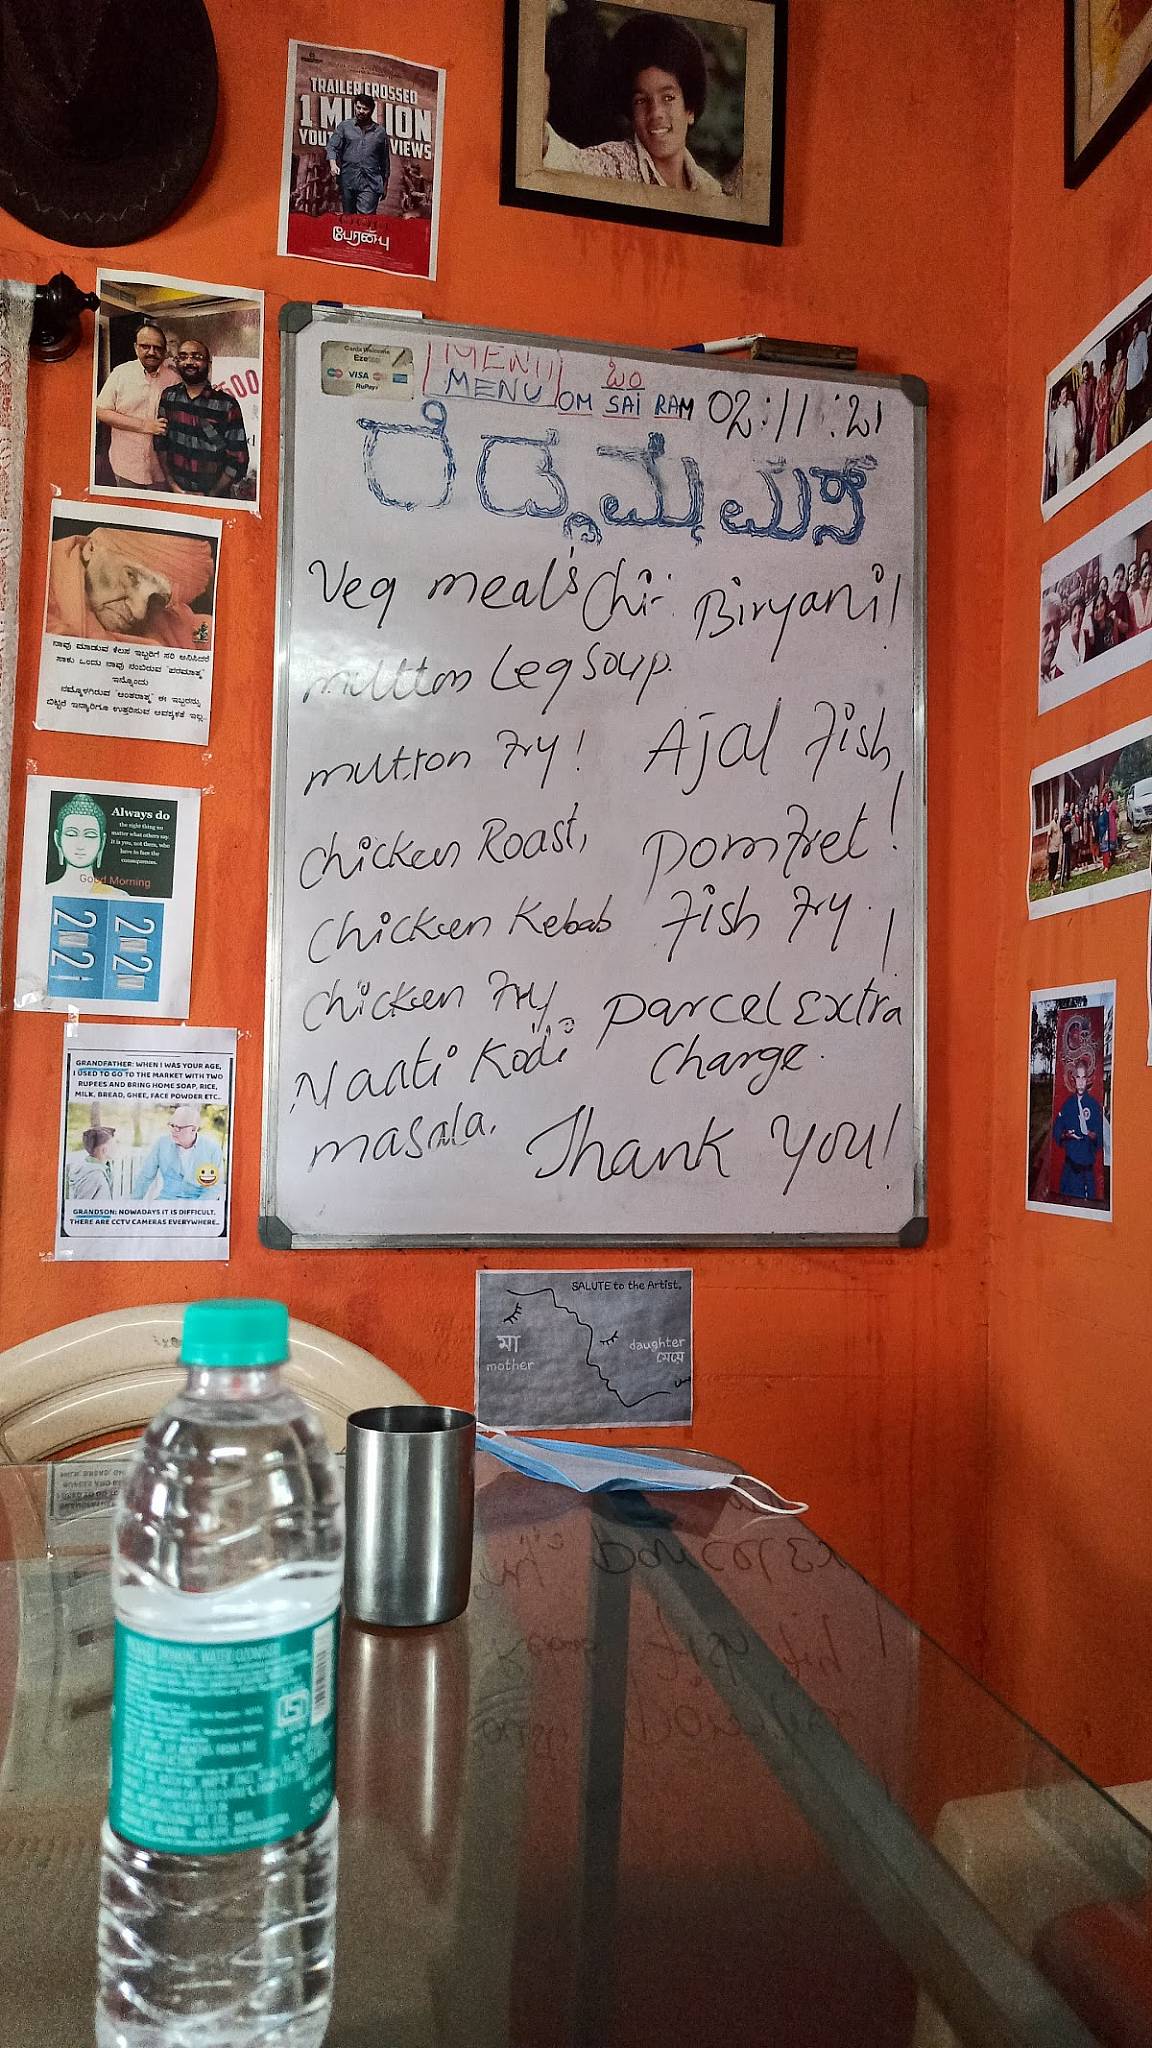 TRAILER CROSSED
1 MILLION
VIEWS
பேரன்பு
Cards Welcome
VISA
RuPay
MENU
MENU
ఓం
OM SAI RAM
02:11:21
Veg meal's Chi: Biryani!
mutton Leg Soup.
mutton Fry! Ajal Fish
Chicken Roast, Pomfret!
Chicken Kebab Fish Fry.
Chicken Fry Parcel Extra
Naati Kodi Charge.
masala. Thank You!
500
ನಾವು ಮಾಡುವ ಕೆಲಸ ಇಬ್ಬರಿಗೆ ಸರಿ ಅನಿಸಿದರೆ
ಸಾಕು ಒಂದು ನಾವು ನಂಬಿರುವ "ಪರಮಾತ್ಮ"
ಇನ್ನೊಂದು
ನಮ್ಮೊಳಗಿರುವ "ಅಂತರಾತ್ಮ" ಈ ಇಬ್ಬರನ್ನು
ಬಿಟ್ಟರೆ ಇನ್ಯಾರಿಗೂ ಉತ್ತರಿಸುವ ಅವಶ್ಯಕತೆ ಇಲ್ಲ..
Always do
the right thing no
matter what others say.
it is you, not them, who
have to face the
consequences.
Good Morning
2021
2020
GRANDFATHER: WHEN I WAS YOUR AGE,
I USED TO GO TO THE MARKET WITH TWO
RUPEES AND BRING HOME SOAP, RICE,
MILK, BREAD, GHEE, FACE POWDER ETC..
GRANDSON: NOWADAYS IT IS DIFFICULT.
THERE ARE CCTV CAMERAS EVERYWHERE..
SALUTE to the Artist.
মা
mother
daughter
মেয়ে